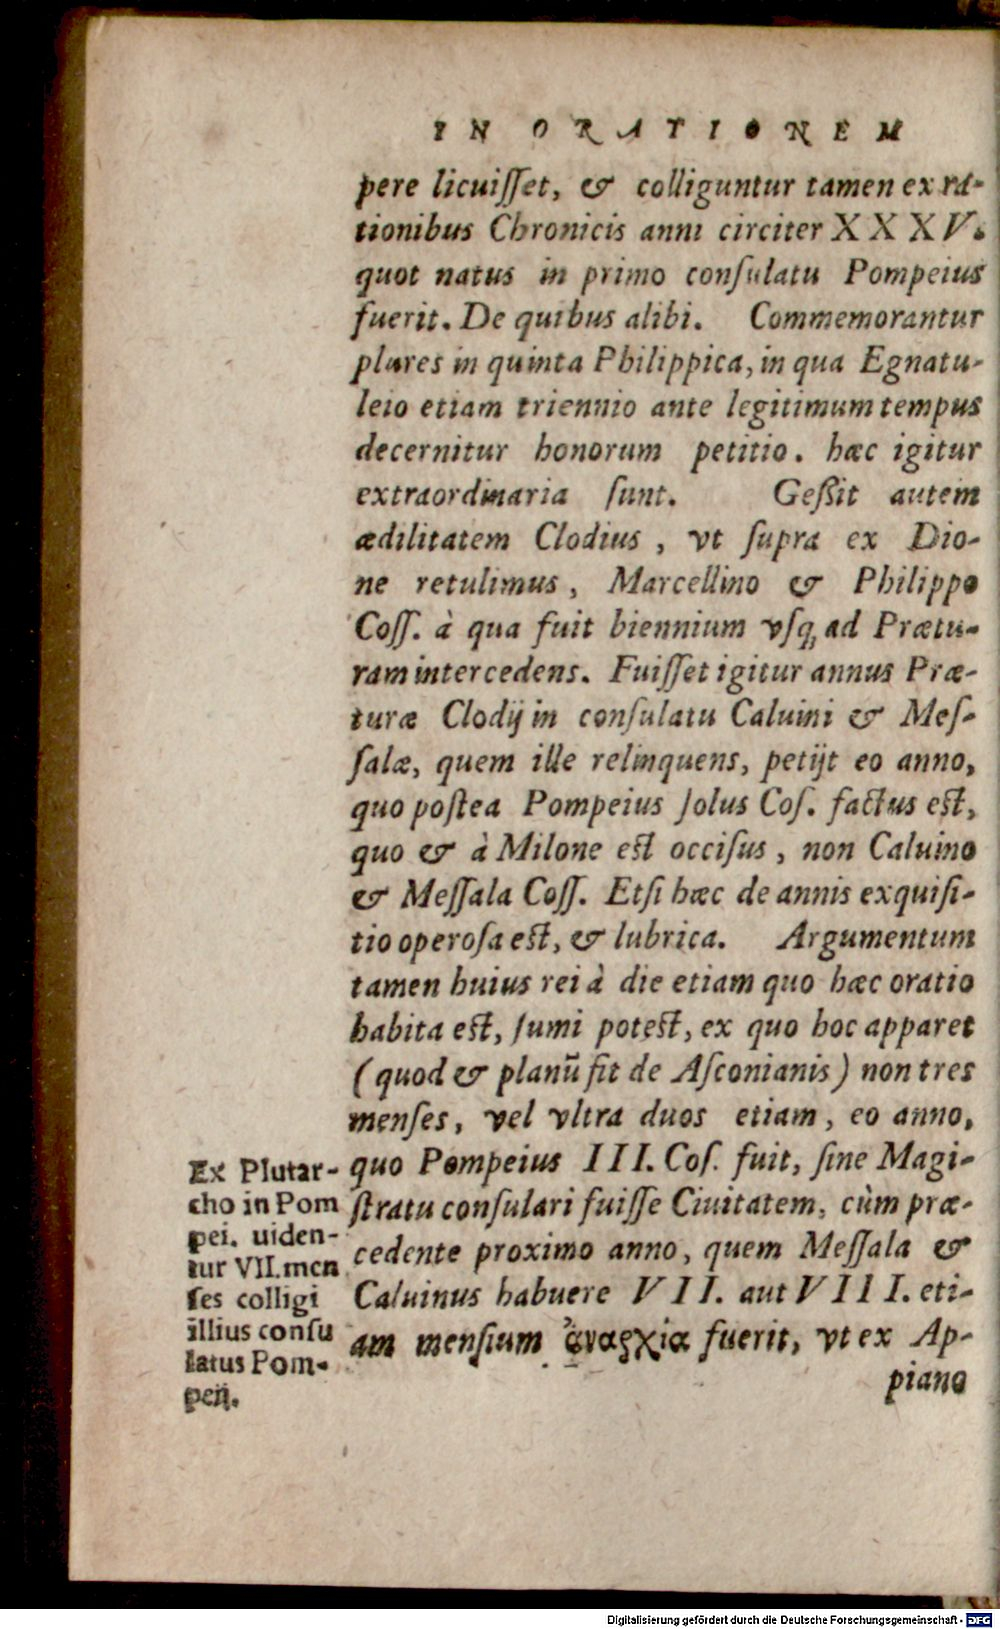 IN ORATIONEM
pere licuiſſet, & colliguntur tamen ex ra-
tionibus Chronicis anni circiter XXXV.
quot natus in primo conſulatu Pompeius
fuerit. De quibus alibi. Commemorantur
plures in quinta Philippica, in qua Egnatu-
leio etiam triennio ante legitimum tempus
decernitur honorum petitio. hæc igitur
extraordinaria ſunt. Geßit autem
ædilitatem Clodius, vt ſupra ex Dio-
ne retulimus, Marcellino & Philippo
Coſſ. à qua fuit biennium vſq; ad Prætu-
ram intercedens. Fuiſſet igitur annus Præ-
turæ Clodij in conſulatu Caluini & Meſ-
ſalæ, quem ille relinquens, petijt eo anno,
quo poſtea Pompeius ſolus Coſ. factus eſt,
quo & à Milone eſt occiſus, non Caluino
& Meſſala Coſſ. Etſi hæc de annis exquiſi-
tio operoſa eſt, & lubrica. Argumentum
tamen huius rei à die etiam quo hæc oratio
habita eſt, ſumi poteſt, ex quo hoc apparet
(quod & planū fit de Aſconianis) non tres
menſes, vel vltra duos etiam, eo anno,
quo Pompeius III. Coſ. fuit, ſine Magi-
ſtratu conſulari fuiſſe Ciuitatem, cùm præ-
cedente proximo anno, quem Meſſala &
Caluinus habuere VII. aut VIII. eti-
am menſium ἀναρχία fuerit, vt ex Ap-
piano
Ex Plutar-
cho in Pom
pei. uiden-
tur VII. men
ſes colligi
illius conſu
latus Pom-
peij.
Digitalisierung gefördert durch die Deutsche Forschungsgemeinschaft - DFG